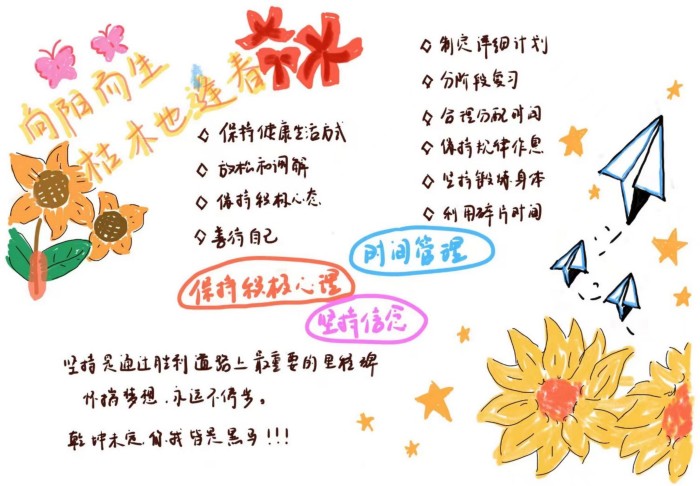 向阳而生
枯木也逢春
◇ 保持健康生活方式
◇ 放松和调解
◇ 保持积极心态
◇ 善待自己
◇ 制定详细计划
◇ 分阶段复习
◇ 合理分配时间
◇ 保持规律作息
◇ 坚持锻炼身体
◇ 利用碎片时间
时间管理
保持积极心理
坚持信念
坚持是通过胜利道路上最重要的里程碑
怀揣梦想，永远不停步。
乾坤未定 你我皆是黑马!!!